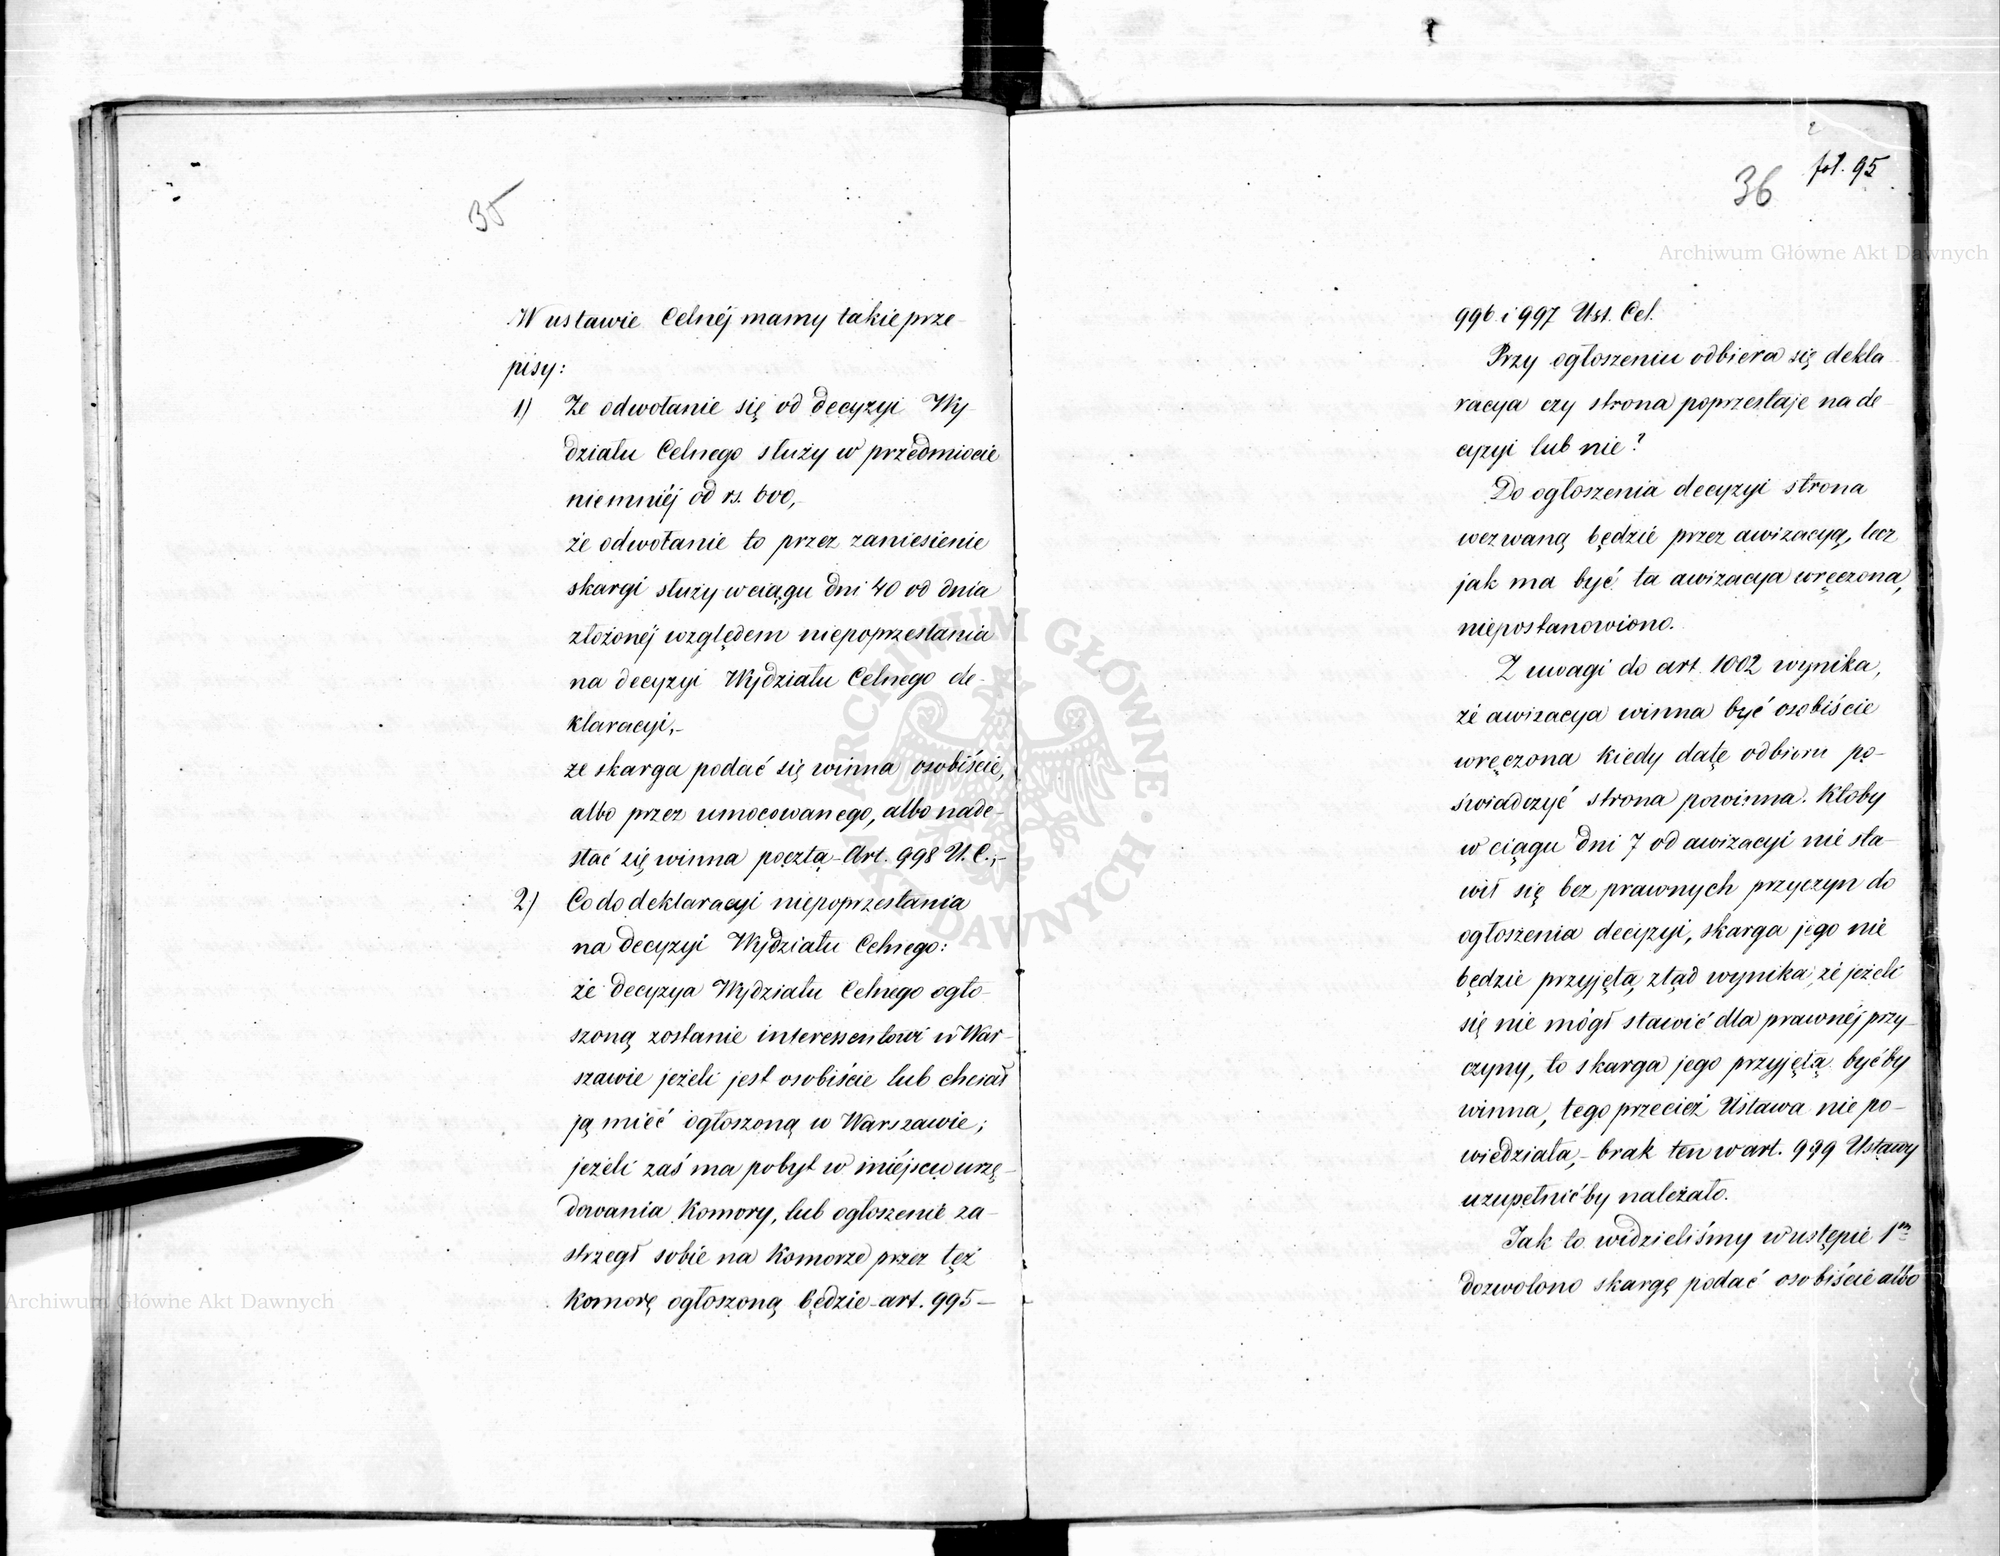 35
W ustawie Celnéj mamy takie prze-
pisy:
1) Że odwołanie się od decyzyi Wy-
działu Celnego służy w przedmiocie
niemniéj od rs. 600,-
że odwołanie to przez zaniesienie
skargi służy w ciągu dni 40 od dnia
złożonéj względem niepoprzestania
na decyzyi Wydziału Celnego de-
klaracyi,-
że skarga podać się winna osobiście,
albo przez umocowanego, albo nade-
słać się winna pocztą - Art. 998 U. C.,-
2) Co do deklaracyi niepoprzestania
na decyzyi Wydziału Celnego:
że decyzya Wydziału Celnego ogło-
szoną zostanie interessentowi w War-
szawie jeżeli jest osobiście lub chciał
ją mieć ogłoszoną w Warszawie;
jeżeli zaś ma pobyt w miéjscu urzę-
dowania Komory, lub ogłoszenie za-
strzegł sobie na Komorze przez też
Komorę ogłoszoną będzie - art. 995 -
36 fol. 95
996 i 997 Ust. Cel.
Przy ogłoszeniu odbiera się dekla-
racya czy strona poprzestaje na de-
cyzyi lub nie?
Do ogłoszenia decyzyi strona
wezwaną będzie przez awizacyą, lecz
jak ma być ta awizacya wręczona,
niepostanowiono.
Z uwagi do art. 1002 wynika,
że awizacya winna być osobiście
wręczona kiedy datę odbioru po-
świadczyć strona powinna. Ktoby
w ciągu dni 7 od awizacyi nie sta-
wił się bez prawnych przyczyn do
ogłoszenia decyzyi, skarga jego nie
będzie przyjętą, ztąd wynika, że jeżeli
się nie mógł stawić dla prawnéj przy-
czyny, to skarga jego przyjętą byćby
winna, tego przecież Ustawa nie po-
wiedziała,- brak ten w art. 999 Ustawy
uzupełnićby należało.
Jak to widzieliśmy w ustępie 1m
dozwolono skargę podać osobiście albo
Archiwum Główne Akt Dawnych
Archiwum Główne Akt Dawnych
ARCHIWUM GŁÓWNE AKT DAWNYCH